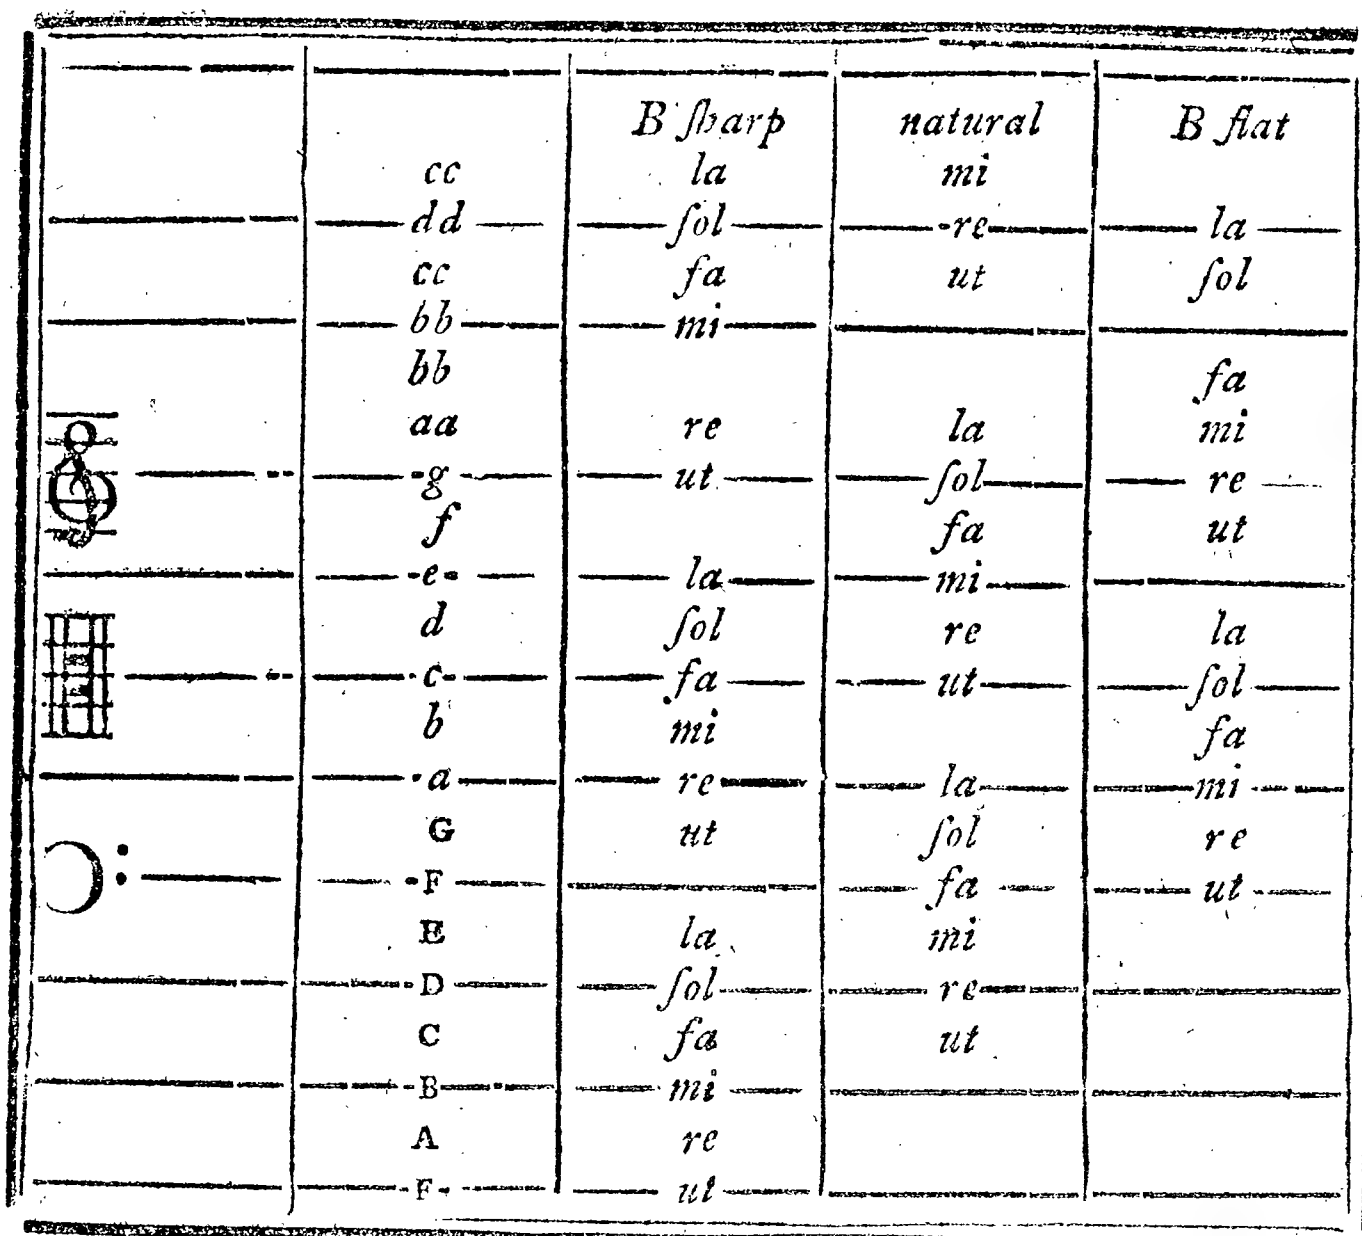 B ſharp natural B flat
cc la mi
dd ſol re la
cc fa ut ſol
bb mi
bb fa
aa re la mi
g ut ſol re
f fa ut
e la mi
d ſol re la
c fa ut ſol
b mi fa
a re la mi
G ut ſol re
F fa ut
E la mi
D ſol re
C fa ut
B mi
A re
F ut